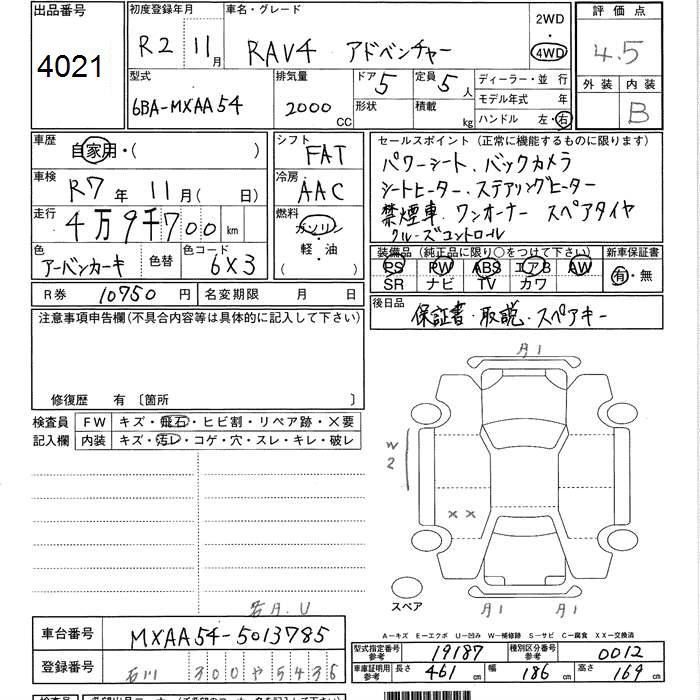 出品番号 初度登録年月 車名・グレード 2WD 評価点
4021 R2 11月 RAV4 アドベンチャー 4WD 4.5
型式 排気量 ドア 5 定員 5人 ディーラー・並行 外装 内装
6BA-MXAA54 2000CC 形状 積載 kg モデル年式 年 B
ハンドル 左・右
車歴 自家用・( ) シフト FAT セールスポイント(正常に機能するものに限ります)
車検 R7年 11月( 日) 冷房 AAC パワーシート、バックカメラ
シートヒーター、ステアリングヒーター
走行 4万9千700km 燃料 ガソリン 禁煙車、ワンオーナー スペアタイヤ
軽・油 クルーズコントロール
色 アーバンカーキ 色替 色コード 6X3 ( )
装備品(純正品に限り○をつけて下さい) 新車保証書
PS PW ABS エアB AW 有・無
SR ナビ TV カワ
R券 10750円 名変期限 月 日
後日品 保証書・取説・スペアキー
注意事項申告欄(不具合内容等は具体的に記入して下さい)
修復歴 有〔箇所 〕
検査員 FW キズ・飛石・ヒビ割・リペア跡・×要
記入欄 内装 キズ・汚レ・コゲ・穴・スレ・キレ・破レ
A1
W2
XX
スペア A1 A1
A-キズ E-エクボ U-凹み W-補修跡 S-サビ C-腐食 XX-交換済
車台番号 MXAA54-5013785
登録番号 石川 300や5436
型式指定番号 参考 19187 種別区分番号 参考 0012
車庫証明用 参考 長さ 461cm 幅 186cm 高さ 169cm